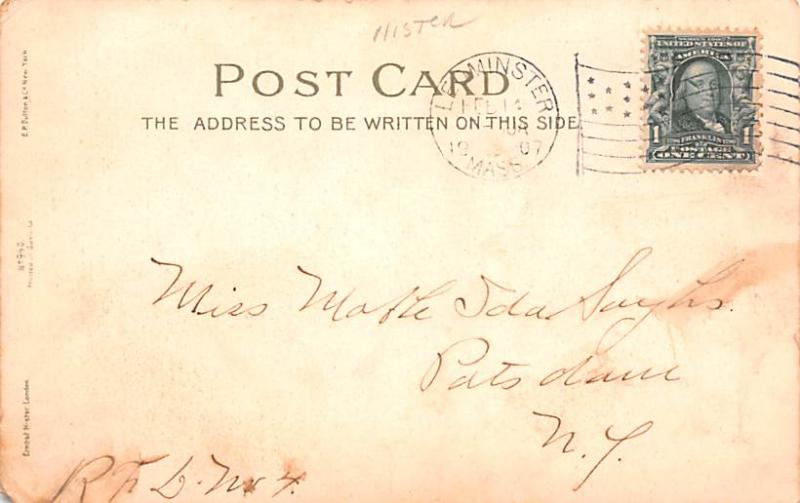 NISTER
POST CARD
THE ADDRESS TO BE WRITTEN ON THIS SIDE
LEOMINSTER
FEB 14
1907
MASS.
SERIES 1902
UNITED STATES OF
AMERICA
1 1
FRANKLIN
POSTAGE
ONE CENT
E.P. Dutton & Co New York
No 940
Printed in
Ernest Nister London
Miss Ida
Potsdam
N.Y.
R.F.D. No 4.